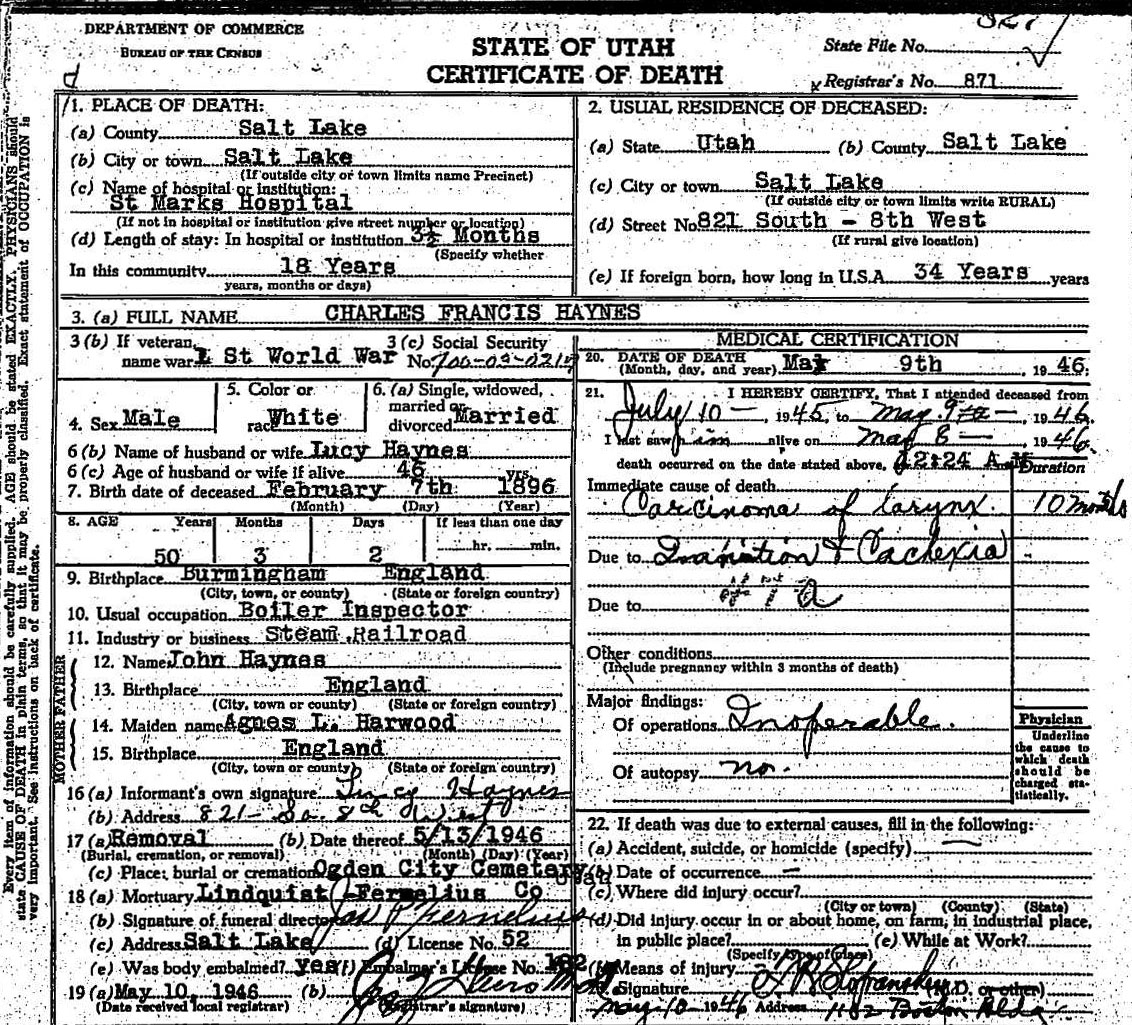 DEPARTMENT OF COMMERCE
BUREAU OF THE CENSUS
STATE OF UTAH
CERTIFICATE OF DEATH
State File No.
Registrar's No. 871
Every item of information should be carefully supplied. AGE should be stated EXACTLY. PHYSICIANS should
state CAUSE OF DEATH in plain terms, so that it may be properly classified. Exact statement of OCCUPATION is
very important. See instructions on back of certificate.
1. PLACE OF DEATH:
(a) County Salt Lake
(b) City or town Salt Lake
(If outside city or town limits name Precinct)
(c) Name of hospital or institution:
St Marks Hospital
(If not in hospital or institution give street number or location)
(d) Length of stay: In hospital or institution 3½ Months
(Specify whether
In this community 18 Years
years, months or days)
2. USUAL RESIDENCE OF DECEASED:
(a) State Utah (b) County Salt Lake
(c) City or town Salt Lake
(If outside city or town limits write RURAL)
(d) Street No. 821 South - 8th West
(If rural give location)
(e) If foreign born, how long in U.S.A. 34 Years years
3. (a) FULL NAME CHARLES FRANCIS HAYNES
3 (b) If veteran, name war 1 St World War
3 (c) Social Security No. 700-03-0217
4. Sex Male
5. Color or race White
6. (a) Single, widowed, married or divorced Married
6 (b) Name of husband or wife Lucy Haynes
6 (c) Age of husband or wife if alive 46 yrs.
7. Birth date of deceased February 7th 1896
(Month) (Day) (Year)
8. AGE Years Months Days If less than one day
50 3 2 hr. min.
9. Birthplace Burmingham England
(City, town, or county) (State or foreign country)
10. Usual occupation Boiler Inspector
11. Industry or business Steam Railroad
FATHER
12. Name John Haynes
13. Birthplace England
(City, town or county) (State or foreign country)
MOTHER
14. Maiden name Agnes L. Harwood
15. Birthplace England
(City, town or county) (State or foreign country)
16 (a) Informant's own signature Lucy Haynes
(b) Address 821- So. 8th West
17 (a) Removal (b) Date thereof 5/13/1946
(Burial, cremation, or removal) (Month) (Day) (Year)
(c) Place; burial or cremation Ogden City Cemetery
18 (a) Mortuary Lindquist Fernelius Co
(b) Signature of funeral director Fernelius
(c) Address Salt Lake (d) License No. 52
(e) Was body embalmed? yes (f) Embalmer's License No.
19 (a) May 10, 1946 (b)
(Date received local registrar) (Registrar's signature)
MEDICAL CERTIFICATION
20. DATE OF DEATH (Month, day, and year) May 9th , 1946.
21. I HEREBY CERTIFY, That I attended deceased from
July 10 - , 1945, to May 9 - , 1946.
I last saw him alive on May 8 - , 1946.
death occurred on the date stated above, 12:24 A.M. Duration
Immediate cause of death
Carcinoma of larynx. 10 months
Due to Inanition & Cachexia
Due to
Other conditions
(Include pregnancy within 3 months of death)
Major findings:
Of operations Inoperable.
Of autopsy no.
Physician
Underline
the cause to
which death
should be
charged sta-
tistically.
22. If death was due to external causes, fill in the following:
(a) Accident, suicide, or homicide (specify)
(b) Date of occurrence -
(c) Where did injury occur?
(City or town) (County) (State)
(d) Did injury occur in or about home, on farm, in industrial place,
in public place? (e) While at Work?
(Specify type of place)
Means of injury
Signature (M.D. or other)
May-10-1946 Address 1182 Boston Bldg.